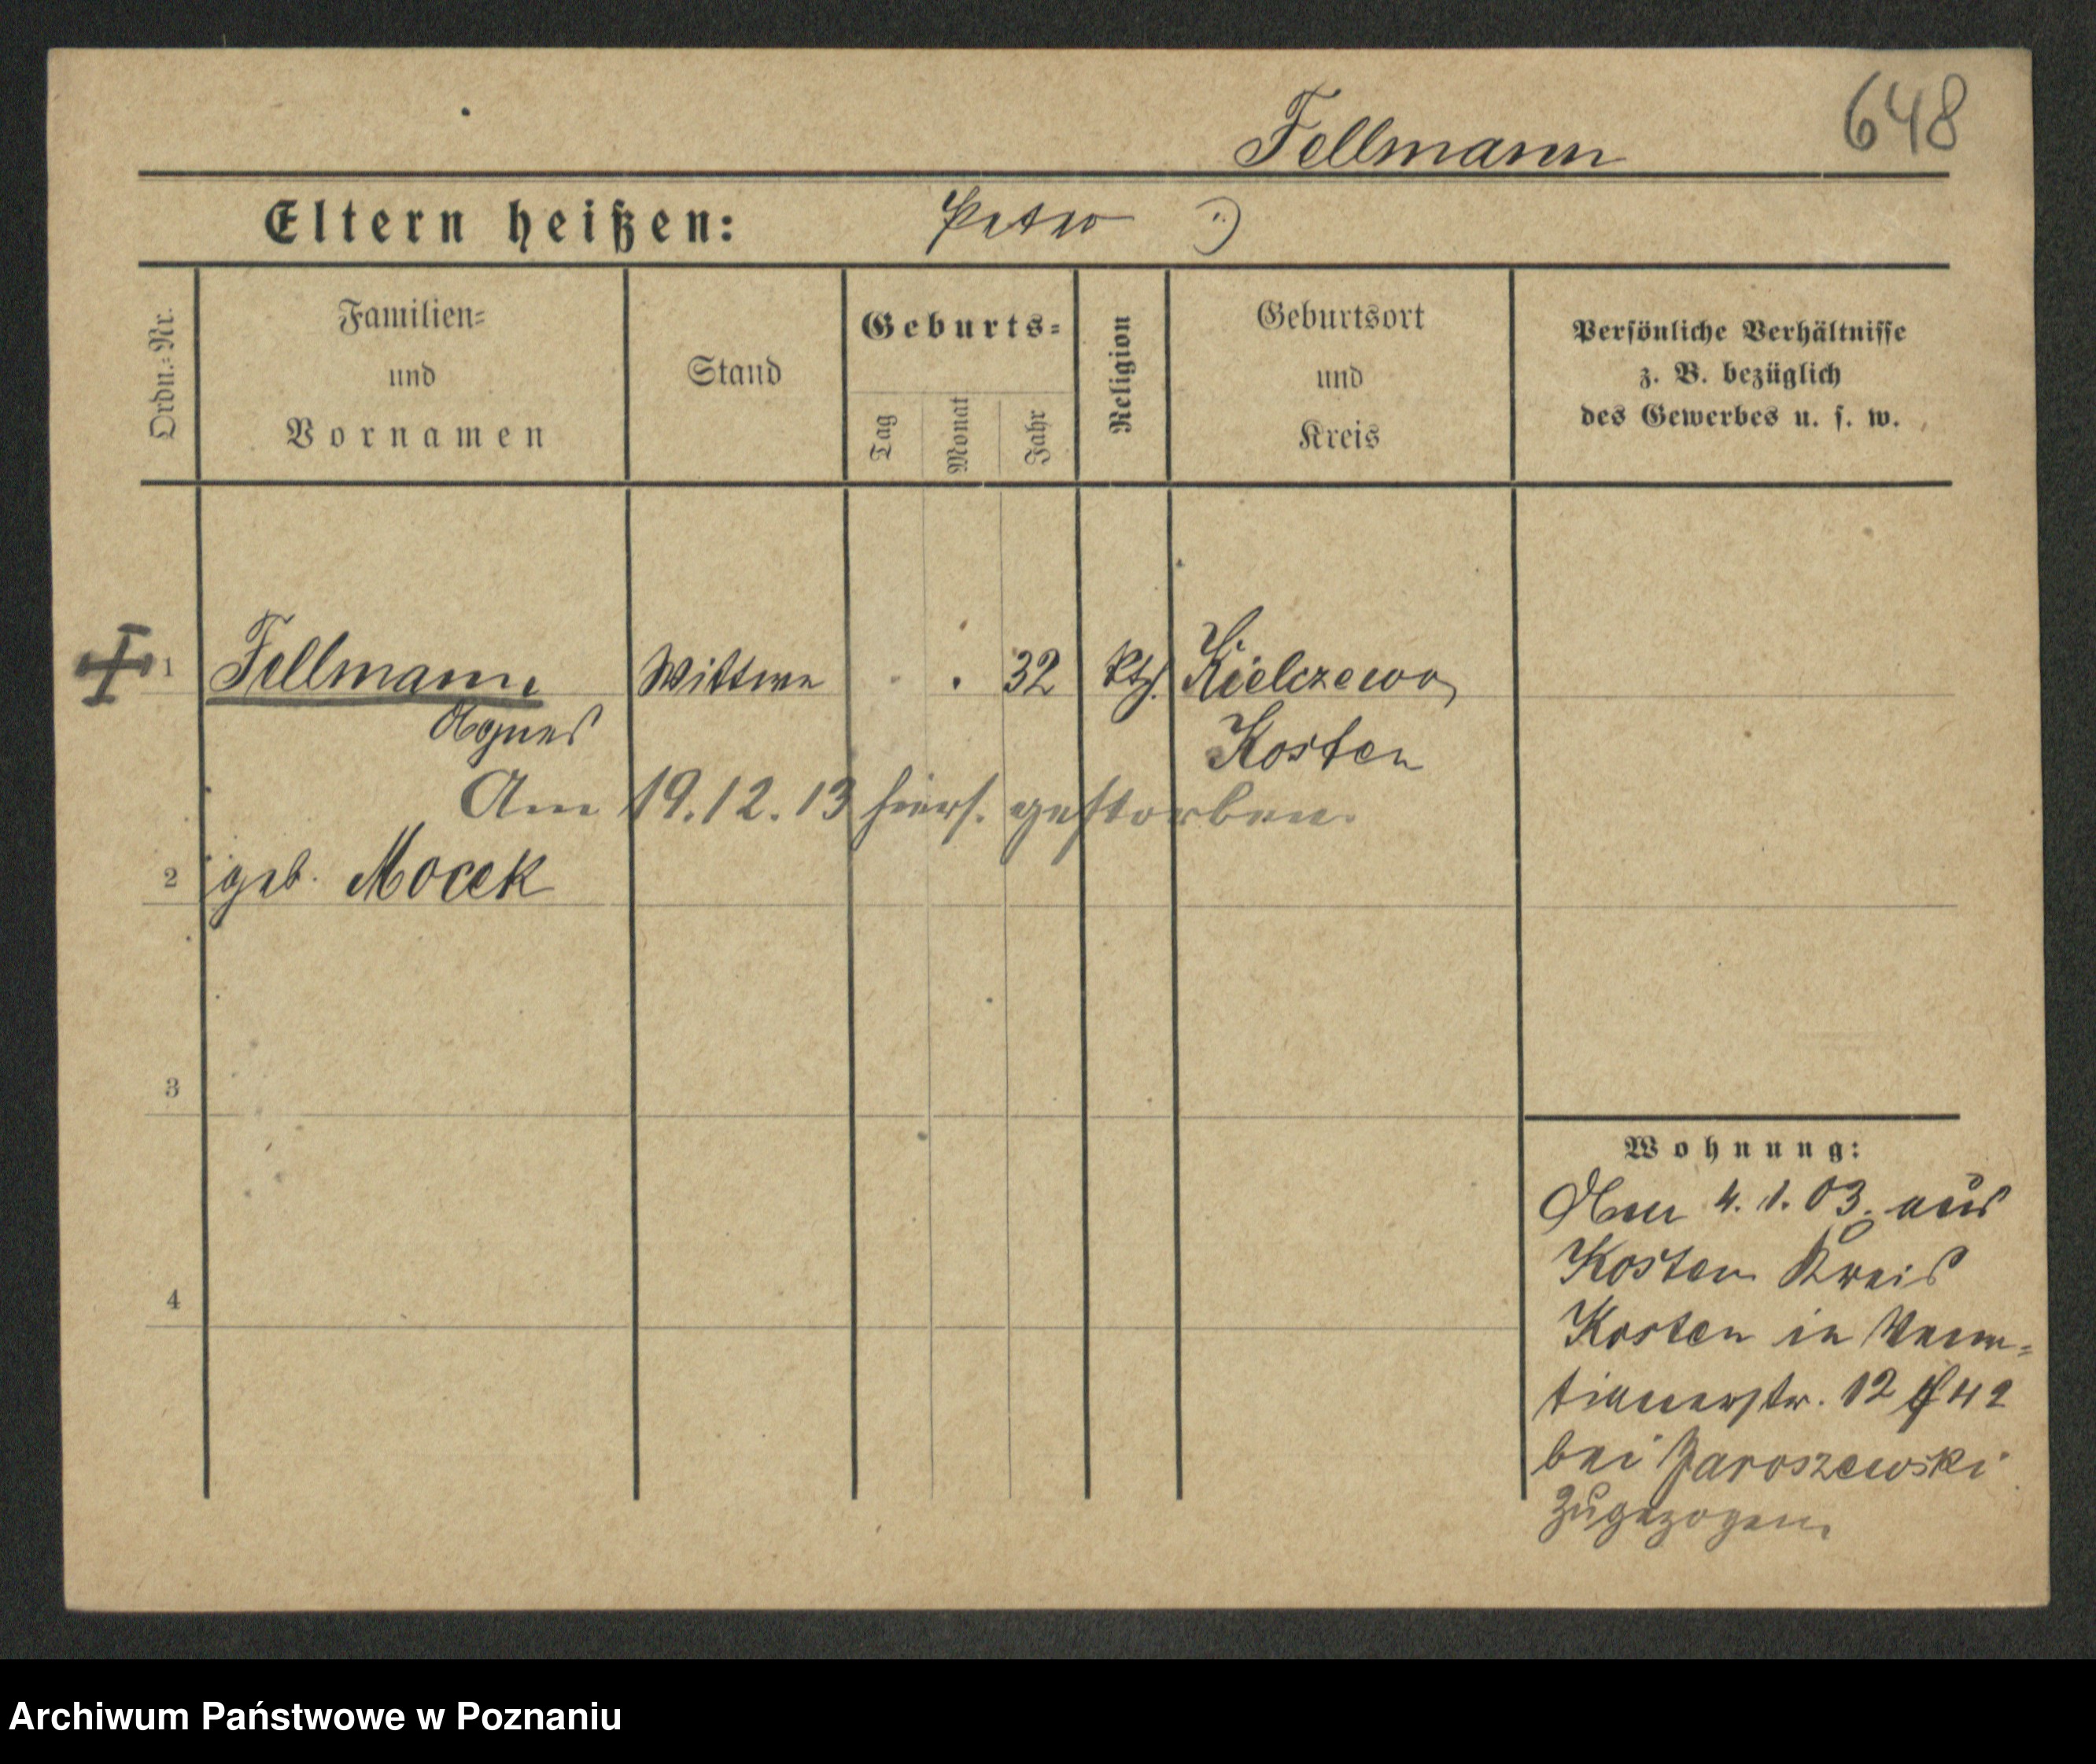 648
Fellmann
Eltern heißen: Peter
Ordn.=Nr.
Familien=
und
Vornamen
Stand
Geburts=
Tag
Monat
Jahr
Religion
Geburtsort
und
Kreis
Persönliche Verhältnisse
z. B. bezüglich
des Gewerbes u. s. w.
1 Fellmann, Wittwe 32 kth. Kielczewo,
Agnes Kosten
Am 19.12.13 hiers. gestorben.
2 geb. Mocek
3
4
Wohnung:
Am 4.1.03. aus
Kosten Kreis
Kosten in
12 42
bei Jaroszewski
zugezogen.
Archiwum Państwowe w Poznaniu